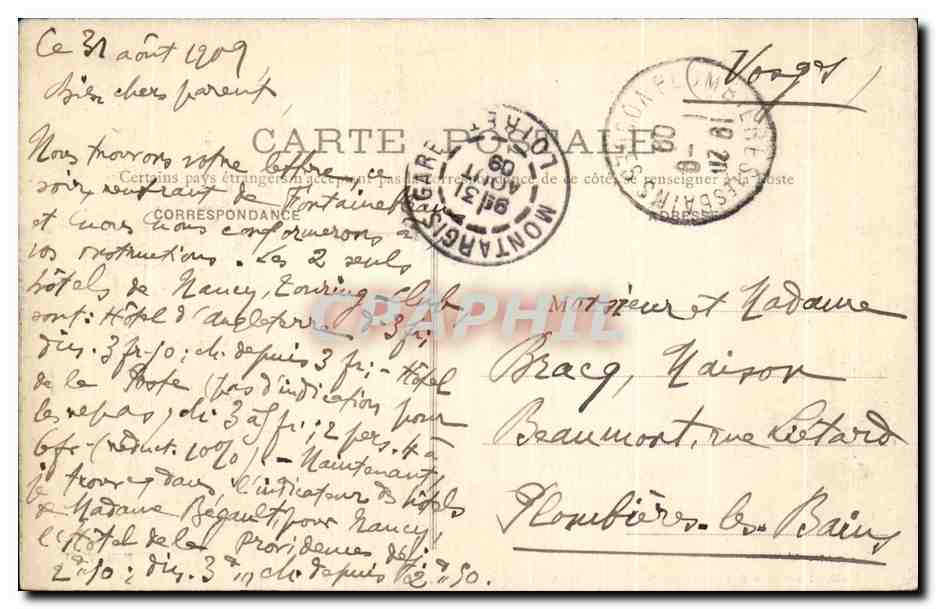 Ce 31 août 1909,
Bien chers parent,
CARTE POSTALE
Certains pays étrangers n'acceptant pas la correspondance de ce côté, se renseigner à la Poste
CORRESPONDANCE
ADRESSE
Nous trouvons votre lettre, ce
soir, en rentrant de Fontainebleau
et nous nous conformerons à
vos instructions. Les 2 seuls
hôtels de Nancy, Touring-Club
sont: Hôtel d'Angleterre dj 3 fr;
din. 3 fr-50; ch. depuis 3 fr; - Hôtel
de la Poste (pas d'indication pour
les repas) ch. 3 à 5 fr; 2 pers. 4 à
6 fr (réduct. 10%). - Maintenant,
je trouve dans l'indicateur des hôtels
de Madame Bégault, pour Nancy
l'Hôtel de la Providence dej:
2"50; din. 3" ch. depuis 2"50.
Vosges
Monsieur et Madame
Bracq, Maison
Beaumont, rue Liétard
Plombières-les-Bains
MONTARGIS-GARE
LOIRET
31
AOUT
09
PLOMBIERES-LES-BAINS
VOSGES
18 20
1-9
09
CRAPHIL